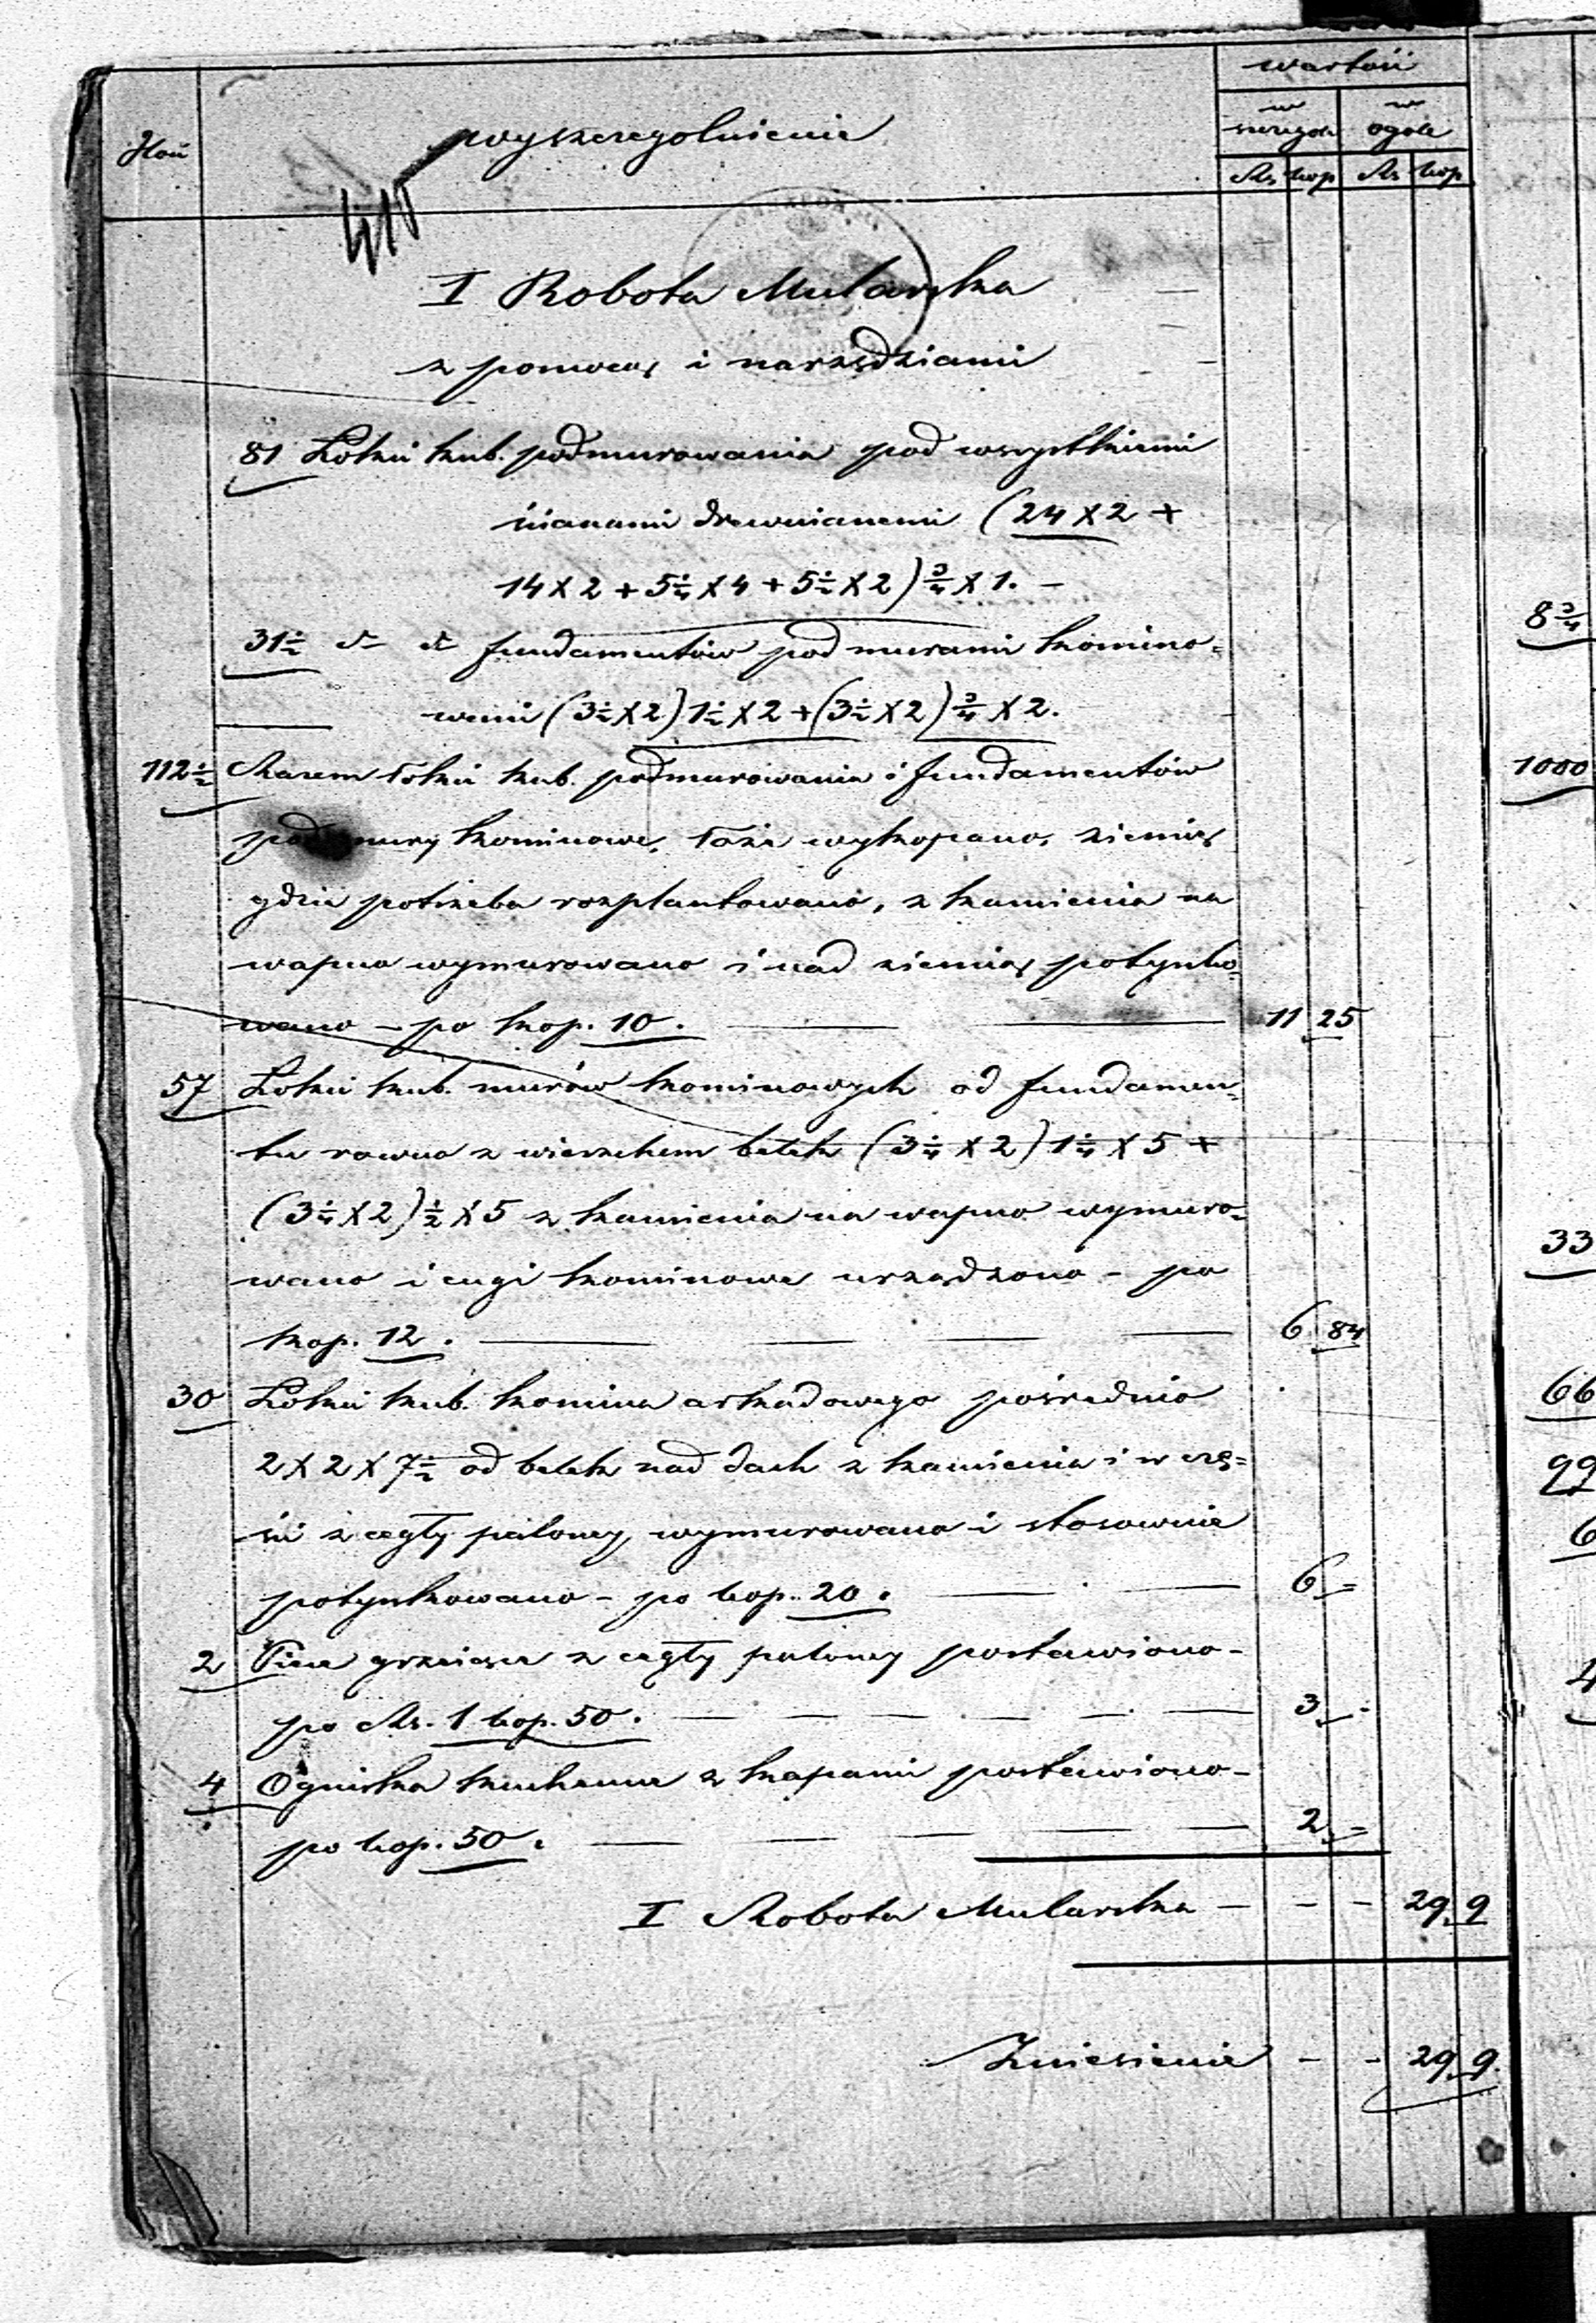 wartość
w w
szczegole ogole
Ilość wyszczegolnienie
Rs kop Rs kop
415
I Robota Mularska
z pomocą i narzędziami
81 Łokci kub. podmurowania pod wszystkiemi
ścianami drewnianemi (24 X 2 +
14 X 2 + 5¼ X 4 + 5½ X 2) ¾ X 1. –
31½ dto dto fundamentów pod murami komino=
wemi (3½ X 2) 1½ X 2 + (3½ X 2) ¾ X 2.
112½ Razem łokci kub. podmurowania i fundamentów
pod mury kominowe, łoże wykopano, ziemię
gdzie potrzeba rozplantowano, z kamienia na
wapno wymurowano i nad ziemią potynko=
wano – po kop. 10. 11 25
57 Łokci kub. murów kominowych od fundamen=
tu rowno z wierzchem belek (3¼ X 2) 1¼ X 5 +
(3¼ X 2) ½ X 5 z kamienia na wapno wymuro=
wano i cugi kominowe urządzono – po
kop. 12. 6 84
30 Łokci kub. komina arkadowego pośrednio
2 X 2 X 7½ od belek nad dach z kamienia i w czę=
ści z cegły paloney, wymurowano i stosownie
potynkowano – po kop. 20. 6 =
2 Piece grzeiące z cegły paloney postawiono –
po Rs. 1 kop. 50. 3 -
4 Ogniska kuchenne z kapami postawiono –
po kop. 50. 2 =
I Robota Mularska – – – 29 9
Zniesienie – – 29 9.
8¾
1000
33
66
99
6
4